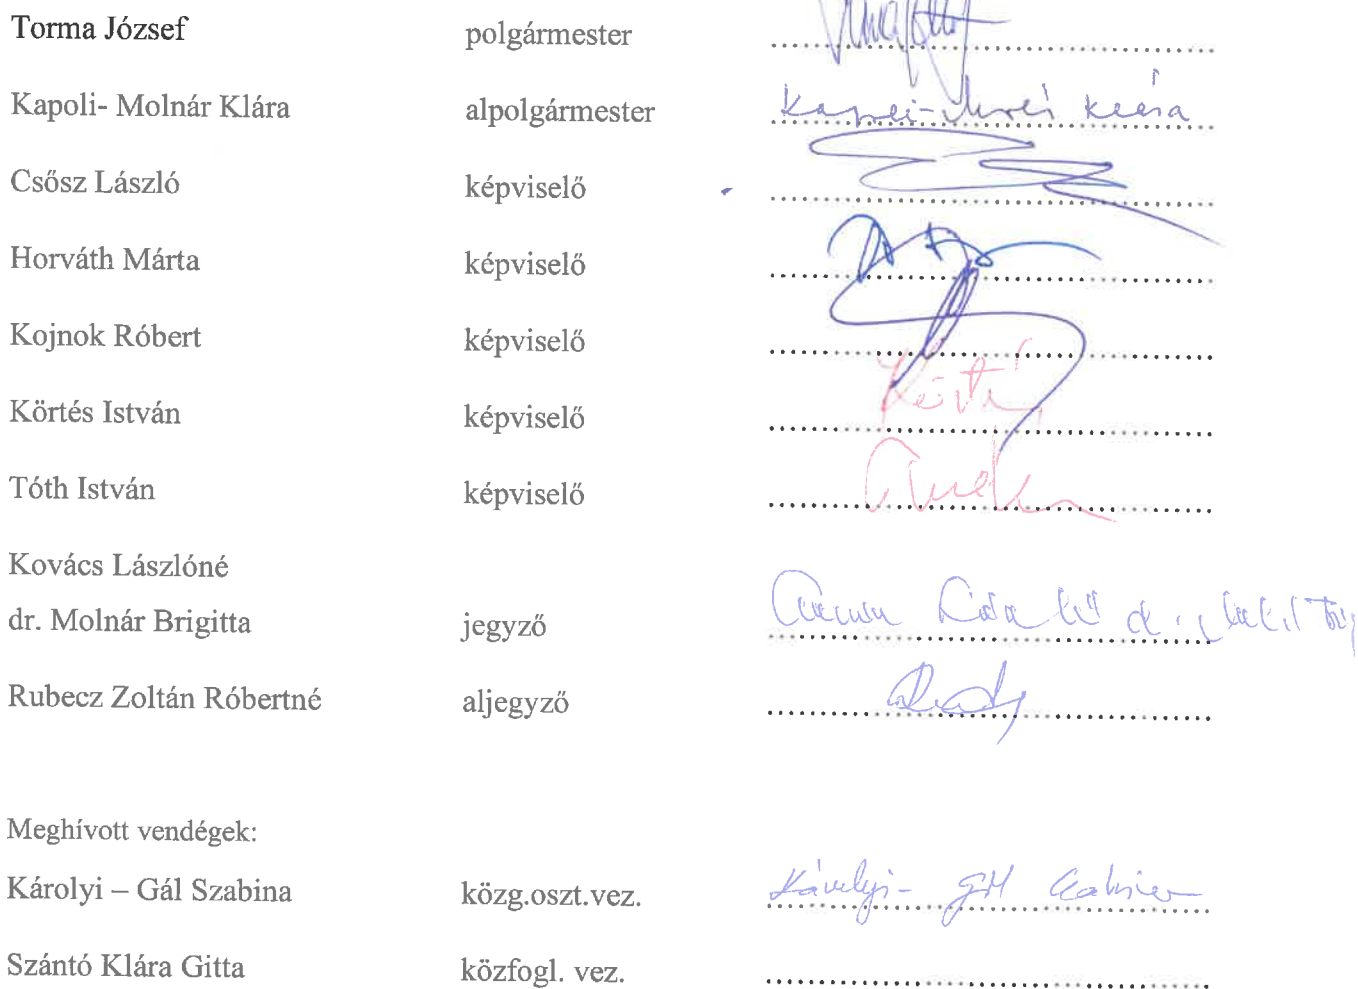 Torma József polgármester
Kapoli- Molnár Klára alpolgármester
Csősz László képviselő
Horváth Márta képviselő
Kojnok Róbert képviselő
Körtés István képviselő
Tóth István képviselő
Kovács Lászlóné
dr. Molnár Brigitta jegyző
Rubecz Zoltán Róbertné aljegyző
Meghívott vendégek:
Károlyi – Gál Szabina közg.oszt.vez. Károlyi- Gál Szabina
Szántó Klára Gitta közfogl. vez.